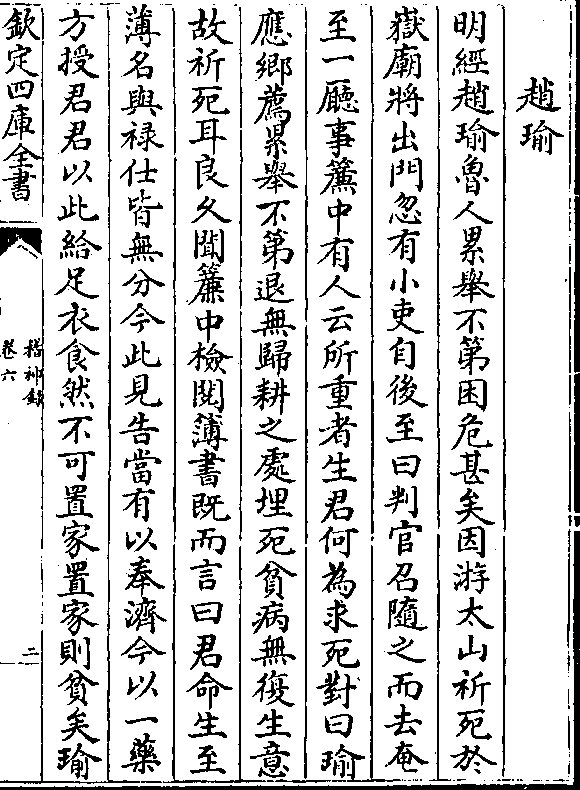 趙瑜
明經趙瑜魯人累舉不第困危甚矣因游太山祈死於
嶽廟將出門忽有小吏自後至曰判官召隨之而去奄
至一廳事簾中有人云所重者生君何為求死對曰瑜
應鄉薦累舉不第退無歸耕之處埋死貧病無復生意
故祈死耳良久聞簾中檢閱簿書既而言曰君命生至
薄名與禄仕皆無分今此見告當有以奉濟今以一藥
方授君君以此給足衣食然不可置家置家則貧矣瑜
欽定四庫全書
稽神錄
卷六
二